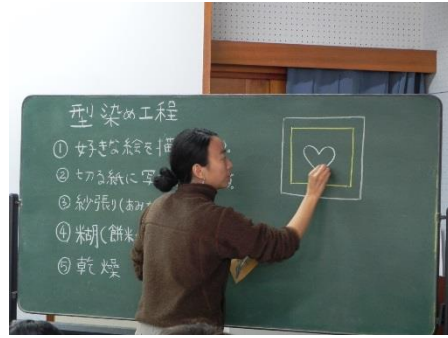 型染め工程
① 好きな絵を描
② 切る紙に写
③ 紗張り(あみ
④ 糊(餅米
⑤ 乾燥